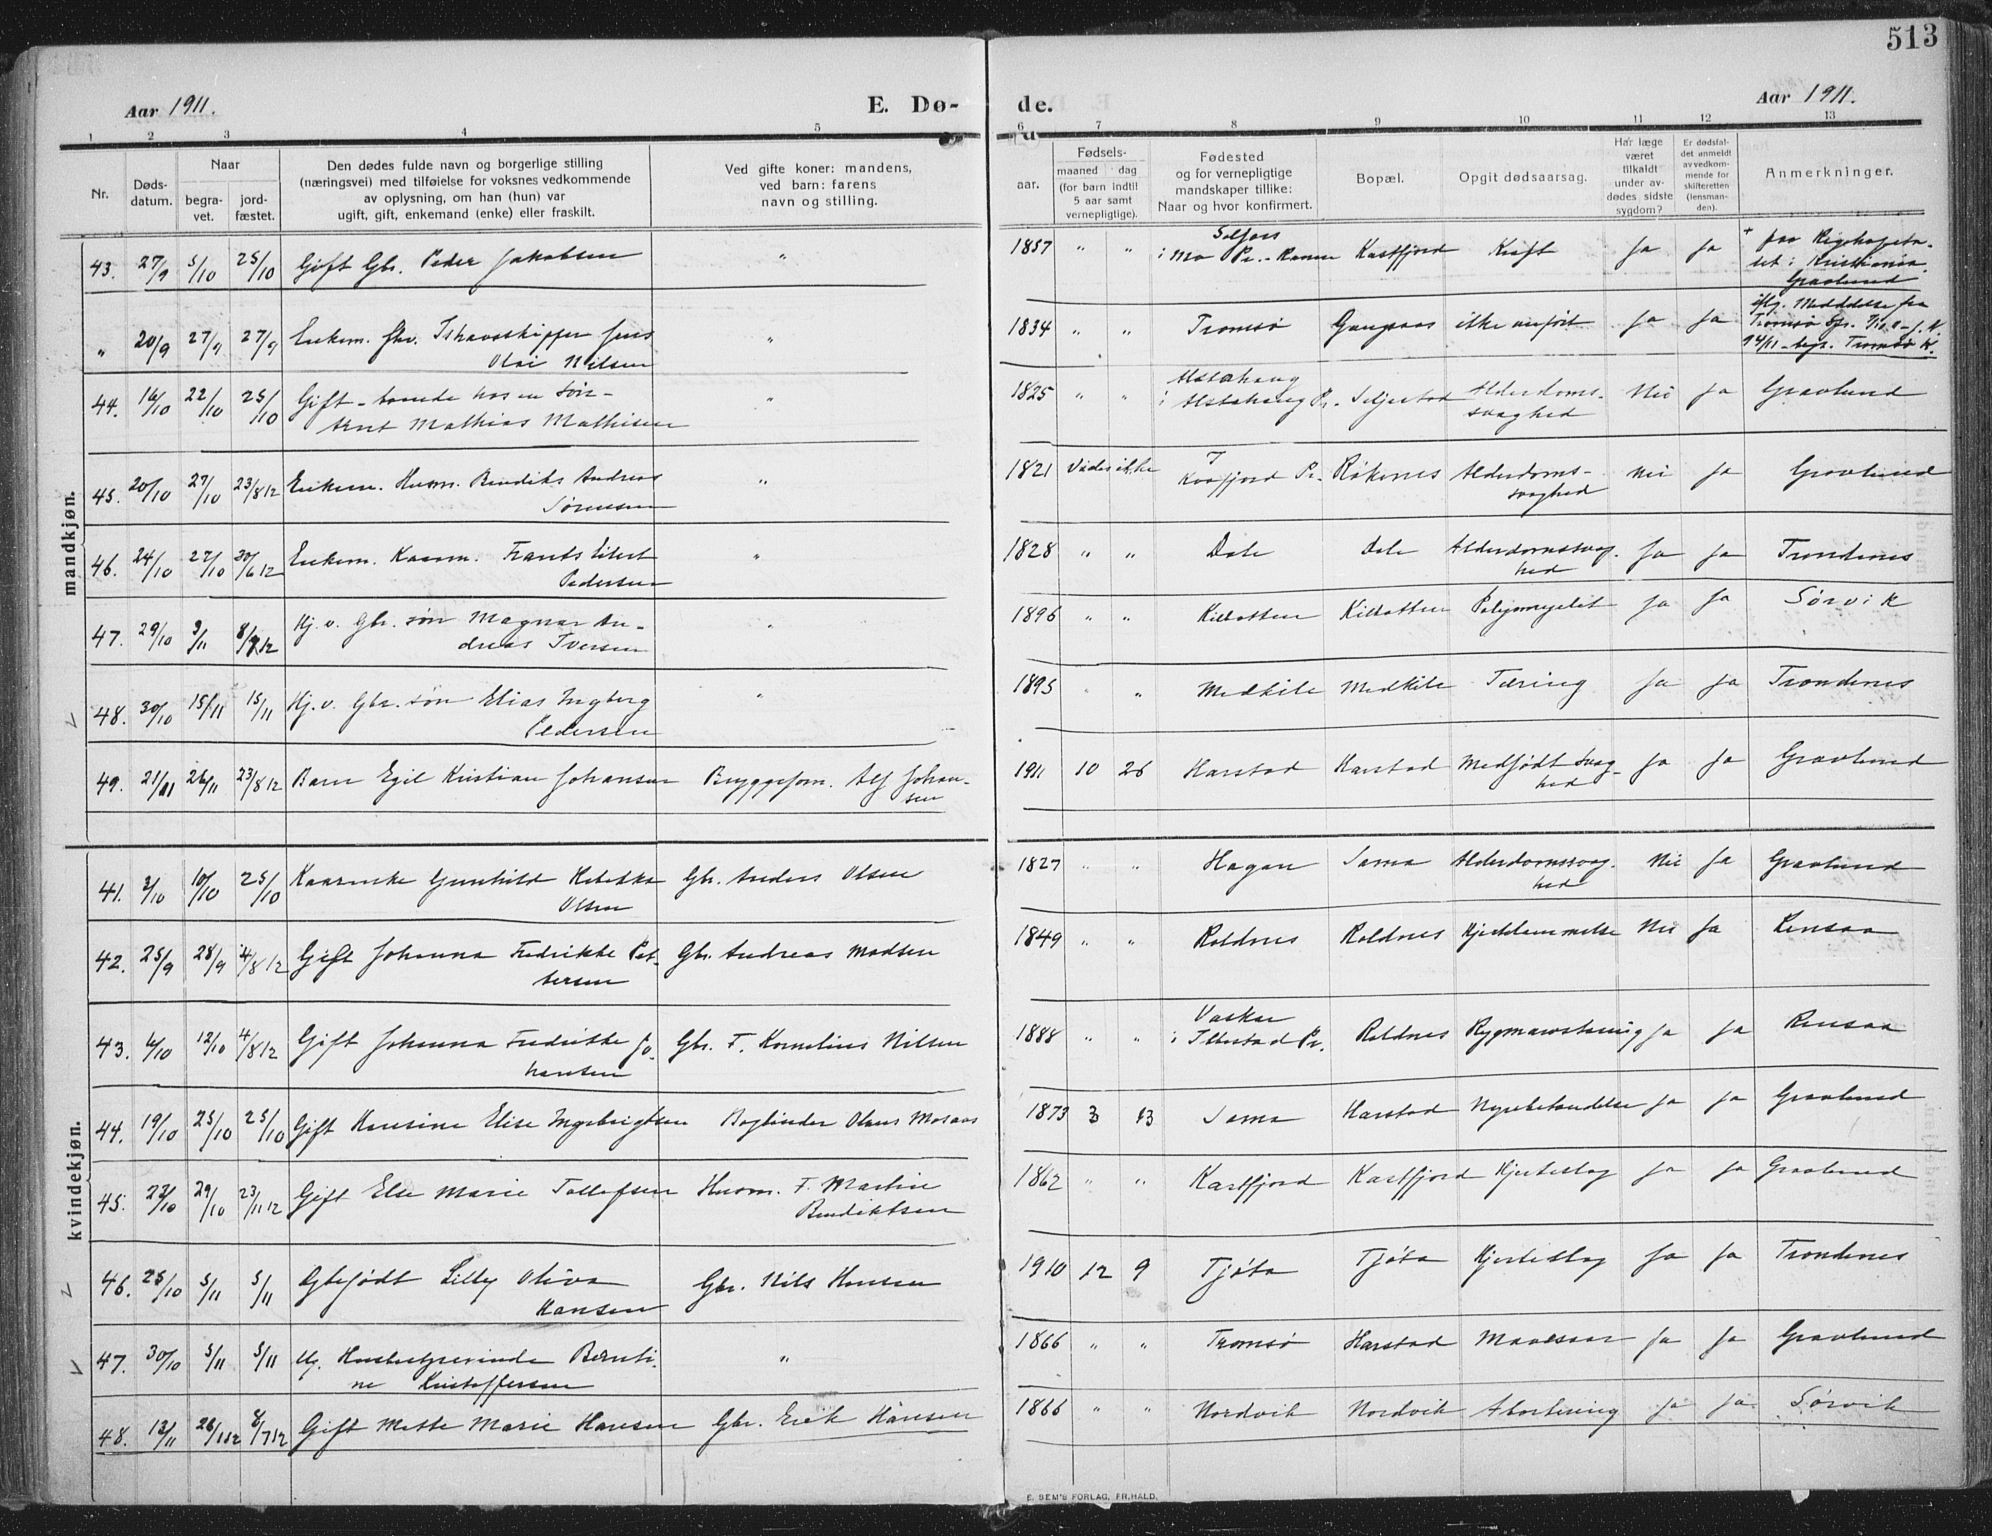 513
Aar 1911. E. Dø- de. Aar 1911.
1 2 3 4 5 6 7 8 9 10 11 12 13
Nr. Dødsdatum. Naar begravet. jordfæstet.
Den dødes fulde navn og borgerlige stilling
(næringsvei) med tilføielse for voksnes vedkommende
av oplysning, om han (hun) var
ugift, gift, enkemand (enke) eller fraskilt.
Ved gifte koner: mandens,
ved barn: farens
navn og stilling.
aar. Fødsels- maaned dag
(for barn indtil
5 aar samt
vernepligtige).
Fødested
og for vernepligtige
mandskaper tillike:
Naar og hvor konfirmert.
Bopæl. Opgit dødsaarsag.
Har læge
været
tilkaldt
under avdødes sidste
sygdom?
Er dødsfaldet anmeldt
av vedkommende for
skifteretten
(lensmanden).
Anmerkninger.
mandkjøn.
43. 27/9 5/10 25/10 Gift Gbr. Peder Jakobsen " 1857 " " Selfors i Mo Pr. - Ranen Kastfjord Kræft Ja Ja + paa Rigshospitalet i Kristiania. Gravlund
" 20/9 27/9 27/9 Enkem. fhv. Ishavsskipper Jens Olai Nilsen " 1834 " " Tromsø Gangsaas ikke anført Ja Ja iflg. Meddelelse fra Tromsø begr. Tromsø
44. 16/10 22/10 25/10 Gift - boende hos en søn - Arnt Mathias Mathisen " 1825 " " Alstahaug i Alstahaug Pr. Seljestad Alderdomssvaghed Nei Ja Gravlund
45. 20/10 27/10 23/8 12 Enkem. Husm. Bendiks Andreas Sørensen " 1821 Vides ikke ? Kvæfjord Pr. Røkenes Alderdomssvaghed Nei Ja Gravlund
46. 24/10 27/10 30/6 12 Enkem. Kaarm. Frants Eilert Pedersen " 1828 " " Dale Dale Alderdomssvaghed Ja Ja Trondenes
47. 29/10 3/11 8/7 12 Hj.v. Gbr. søn Magnar Andreas Iversen " 1896 " " Kilbotten Kilbotten Ja Ja Sørvik
48. 30/10 15/11 15/11 Hj.v. Gbr. søn Elias Ingberg Pedersen " 1895 " " Medkile Medkile Tæring Ja Ja Trondenes
49. 21/11 26/11 23/8 12 Barn Egil Kristian Johansen Bryggeform. Alf Johansen 1911 10 26 Harstad Harstad Medfødt Svaghed Ja Ja Gravlund
kvindekjøn.
41. 3/10 10/10 25/10 Gunhild Rebekka Olsen Gbr. Anders Olsen 1827 " " Hagan Sama Alderdomssvaghed Nei Ja Gravlund
42. 25/9 28/9 4/8 12 Gift Johanna Fredrikke Pettersen Gbr. Andreas Madsen 1849 " " Roldnes Roldnes Hjertelammelse Nei Ja Rensaa
43. 6/10 12/10 4/8 12 Gift Johanna Fredrikke Johansen Gbr. F. Kornelius Nilsen 1888 " " i Ibestad Pr. Roldnes Rygmarvstæring Ja Ja Rensaa
44. 19/10 25/10 25/10 Gift Hansine Elise Ingebrigtsen Bogbinder Olaus Mosaas 1873 3 13 Sama Harstad Nyrebetændelse Ja Ja Gravlund
45. 22/10 29/10 23/11 12 Gift Else Marie Tollefsen Husm. F. Martin Bendiktsen 1862 " " Kastfjord Kastfjord Hjerteslag Ja Ja Gravlund
46. 25/10 5/11 5/11 Lilly Oliva Hansen Gbr. Nils Hansen 1910 12 9 Tjøta Tjøta Hjerteslag Ja Ja Trondenes
47. 30/10 5/11 5/11 Ug. Husbestyrerinde Berntine Kristoffersen " 1866 " " Tromsø Harstad Mavesaar Ja Ja Gravlund
48. 13/11 26/1 12 8/7 12 Gift Mette Marie Hansen Gbr. Erik Hansen 1866 " " Nordvik Nordvik Abortering Ja Ja Sørvik
E. SEM'S FORLAG, FR.HALD.